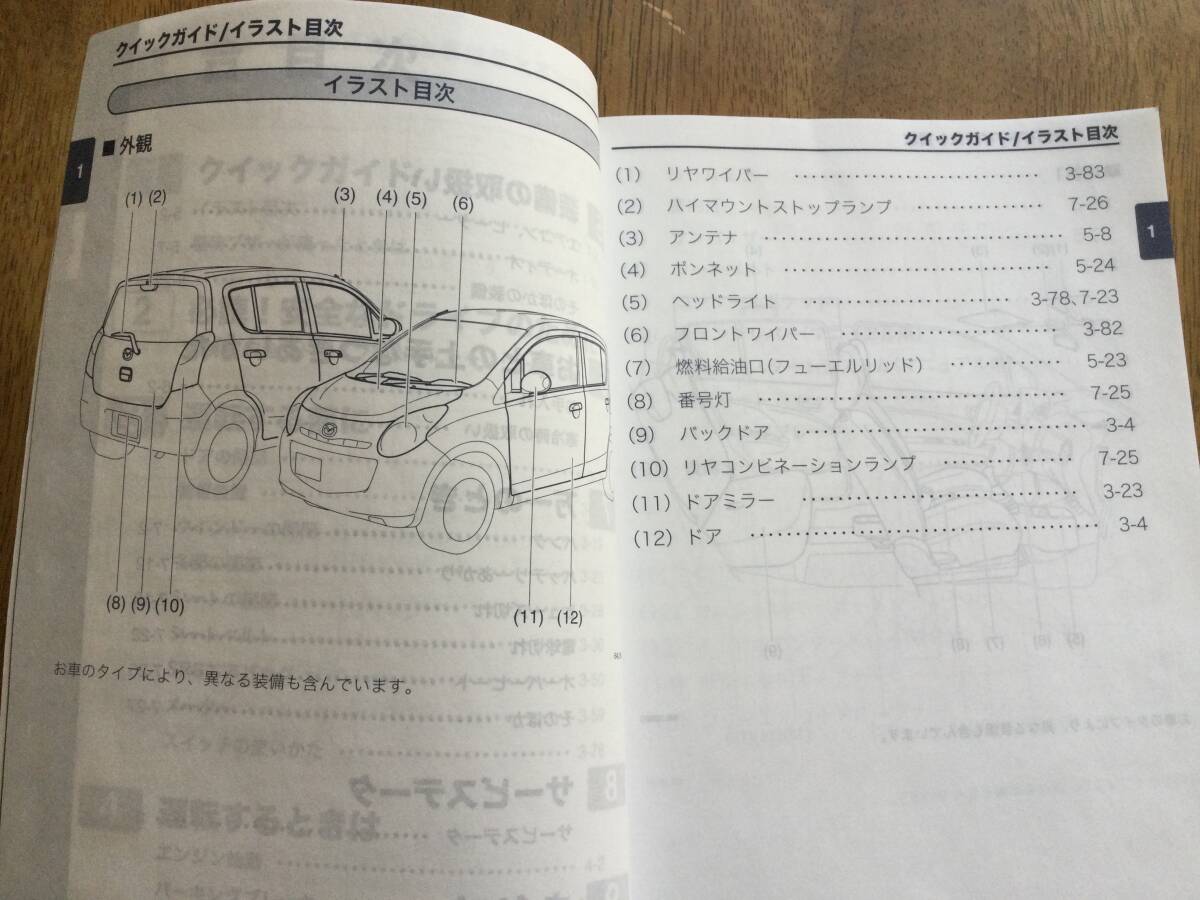 クイックガイド/イラスト目次
イラスト目次
1
■外観
(1) (2) (3) (4) (5) (6)
(8) (9) (10) (11) (12)
お車のタイプにより、異なる装備も含んでいます。
クイックガイド/イラスト目次
1
(1) リヤワイパー ‥‥‥‥‥‥‥‥‥‥‥‥ 3-83
(2) ハイマウントストップランプ ‥‥‥‥‥‥ 7-26
(3) アンテナ ‥‥‥‥‥‥‥‥‥‥‥‥‥‥ 5-8
(4) ボンネット ‥‥‥‥‥‥‥‥‥‥‥‥‥ 5-24
(5) ヘッドライト ‥‥‥‥‥‥‥‥‥‥ 3-78、7-23
(6) フロントワイパー ‥‥‥‥‥‥‥‥‥‥ 3-82
(7) 燃料給油口(フューエルリッド) ‥‥‥‥‥ 5-23
(8) 番号灯 ‥‥‥‥‥‥‥‥‥‥‥‥‥‥ 7-25
(9) バックドア ‥‥‥‥‥‥‥‥‥‥‥‥‥ 3-4
(10) リヤコンビネーションランプ ‥‥‥‥‥‥ 7-25
(11) ドアミラー ‥‥‥‥‥‥‥‥‥‥‥‥‥ 3-23
(12) ドア ‥‥‥‥‥‥‥‥‥‥‥‥‥‥‥‥ 3-4